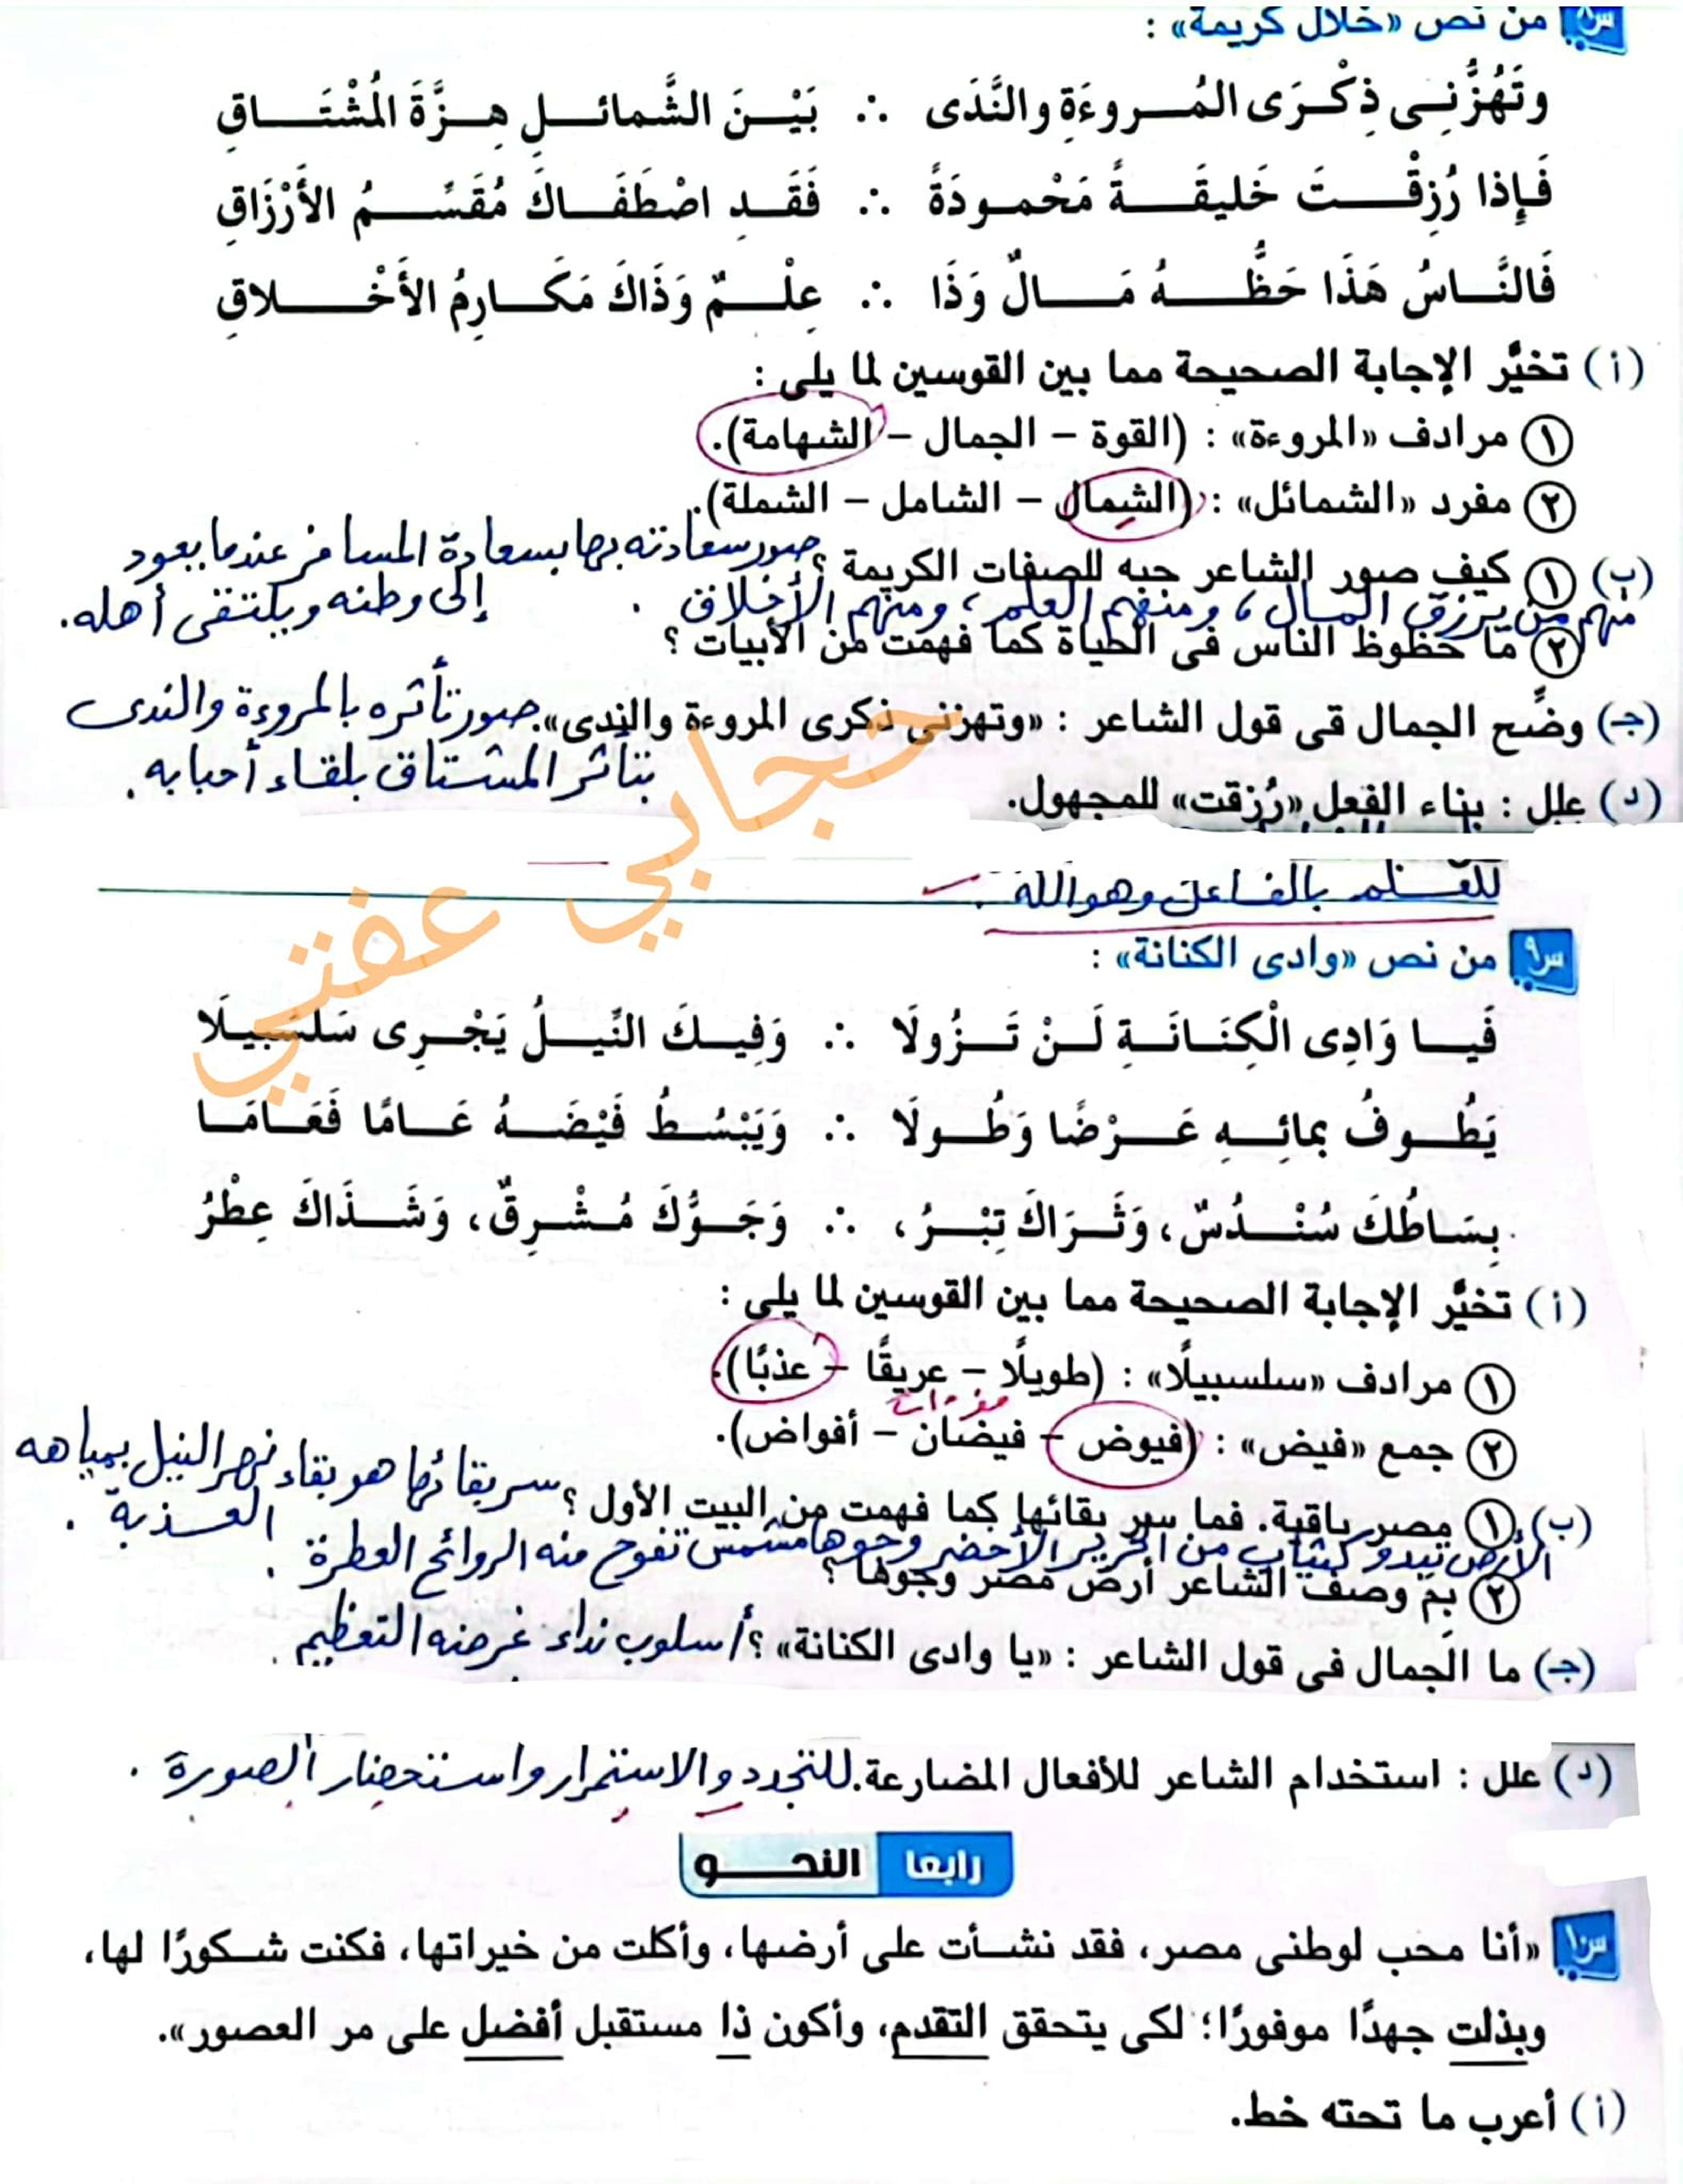 س٨ من نص «خلال كريمة» :
وتَهُزُّنِى ذِكْرَى المُروءَةِ والنَّدَى ∴ بَيْنَ الشَّمائلِ هِزَّةَ المُشْتَاقِ
فَإِذا رُزِقْتَ خَليقَةً مَحْمودَةً ∴ فَقَدِ اصْطَفَاكَ مُقَسِّمُ الأَرْزَاقِ
فَالنَّاسُ هَذَا حَظُّهُ مَالٌ وَذَا ∴ عِلْمٌ وَذَاكَ مَكَارِمُ الأَخْلاقِ
(أ) تخيَّر الإجابة الصحيحة مما بين القوسين لما يلى :
١ مرادف «المروءة» : (القوة – الجمال – الشهامة).
٢ مفرد «الشمائل» : (الشمال – الشامل – الشملة).
(ب) ١ كيف صور الشاعر حبه للصفات الكريمة ؟ صور سعادته بها بسعادة المسافر عندما يعود
إلى وطنه ويلتقى أهله.
منهم من يرزق المال، ومنهم العلم، ومنهم الأخلاق .
٢ ما حظوظ الناس فى الحياة كما فهمت من الأبيات ؟
(جـ) وضِّح الجمال فى قول الشاعر : «وتهزنى ذكرى المروءة والندى». صور تأثره بالمروءة والندى
بتأثر المشتاق بلقاء أحبابه .
(د) علل : بناء الفعل «رُزقت» للمجهول.
للعلم بالفاعل وهو الله .
حجابي عفتي
س٩ من نص «وادى الكنانة» :
فَيا وَادِى الْكِنَانَةِ لَنْ تَزُولَا ∴ وَفِيكَ النِّيلُ يَجْرِى سَلسَبيلَا
يَطُوفُ بمائِهِ عَرْضًا وَطُولَا ∴ وَيَبْسُطُ فَيْضَهُ عَامًا فَعَامَا
بِسَاطُكَ سُنْدُسٌ، وَثَرَاكَ تِبْرُ، ∴ وَجَوُّكَ مُشْرِقٌ، وَشَذَاكَ عِطْرُ
(أ) تخيَّر الإجابة الصحيحة مما بين القوسين لما يلى :
١ مرادف «سلسبيلًا» : (طويلًا – عريقًا – عذبًا).
٢ جمع «فيض» : (فيوض – فيضان – أفواض).
(ب) ١ مصر باقية. فما سر بقائها كما فهمت من البيت الأول ؟ سر بقائها هو بقاء نهر النيل بمياهه
العذبة .
الأرض تبدو كثياب من الحرير الأخضر وجوها مشمس تفوح منه الروائح العطرة .
٢ بِمَ وصف الشاعر أرض مصر وجوها ؟
(جـ) ما الجمال فى قول الشاعر : «يا وادى الكنانة» ؟ أسلوب نداء غرضه التعظيم .
(د) علل : استخدام الشاعر للأفعال المضارعة. للتجدد والاستمرار واستحضار الصورة .
رابعا النحو
س١٠ «أنا محب لوطنى مصر، فقد نشأت على أرضها، وأكلت من خيراتها، فكنت شكورًا لها،
وبذلت جهدًا موفورًا؛ لكى يتحقق التقدم، وأكون ذا مستقبل أفضل على مر العصور».
(أ) أعرب ما تحته خط.